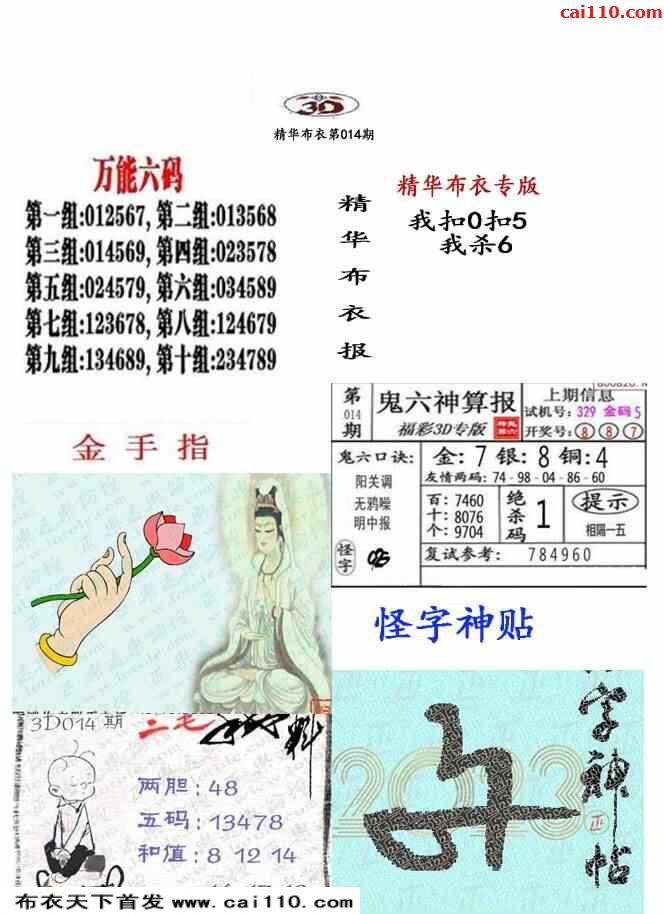 cai110.com
3D
精华布衣第014期
万能六码
第一组:012567,第二组:013568
第三组:014569,第四组:023578
第五组:024579,第六组:034589
第七组:123678,第八组:124679
第九组:134689,第十组:234789
精华布衣报
精华布衣专版
我扣0扣5
我杀6
金手指
第014期
鬼六神算报
福彩3D专版
上期信息
试机号:329 金码5
开奖号:8 8 7
鬼六口诀:
阳关调
无鸦噪
明中报
怪字
金:7 银:8 铜:4
友情两码:74-98-04-86-60
百:7460
十:8076
个:9704
绝杀码 1
提示
相隔一五
复试参考: 784960
怪字神贴
3D014期
二毛
两胆:48
五码:13478
和值:8 12 14
字神帖
2023
布衣天下首发 www.cai110.com